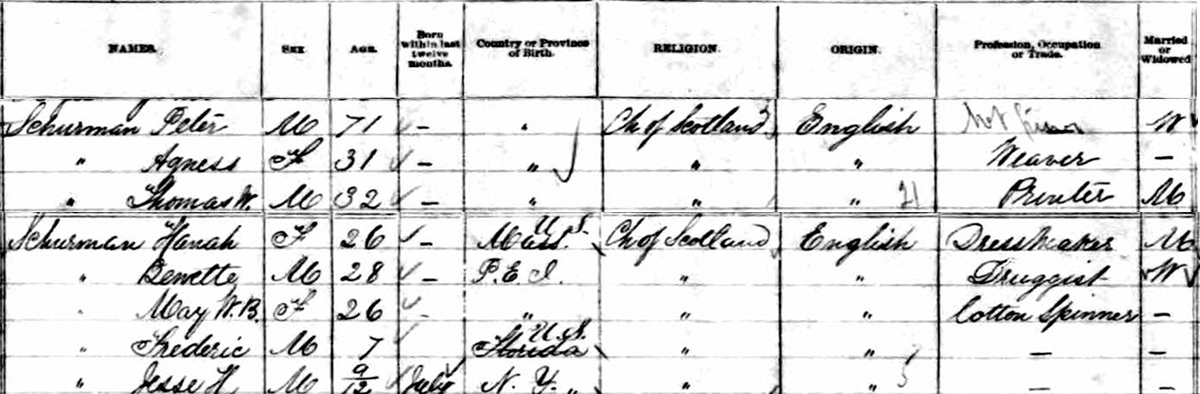 NAMES. SEX. AGE. Born within last twelve months. Country or Province of Birth. RELIGION. ORIGIN. Profession, Occupation or Trade. Married or Widowed
Schurman Peter M 71 – " Ch of Scotland English W
" Agness F 31 – " " " Weaver –
" Thomas W. M 32 – " " " 21 Printer M
Schurman Hanah F 26 – Mass. U.S. Ch of Scotland English Dressmaker M
" Benette M 28 – P.E.I. " " Druggist W
" May W.B. F 26 – " " " Cotton Spinner –
" Frederic M 7 Florida U.S. " " – –
" Jesse H M 9/12 July N.Y. " " " – –